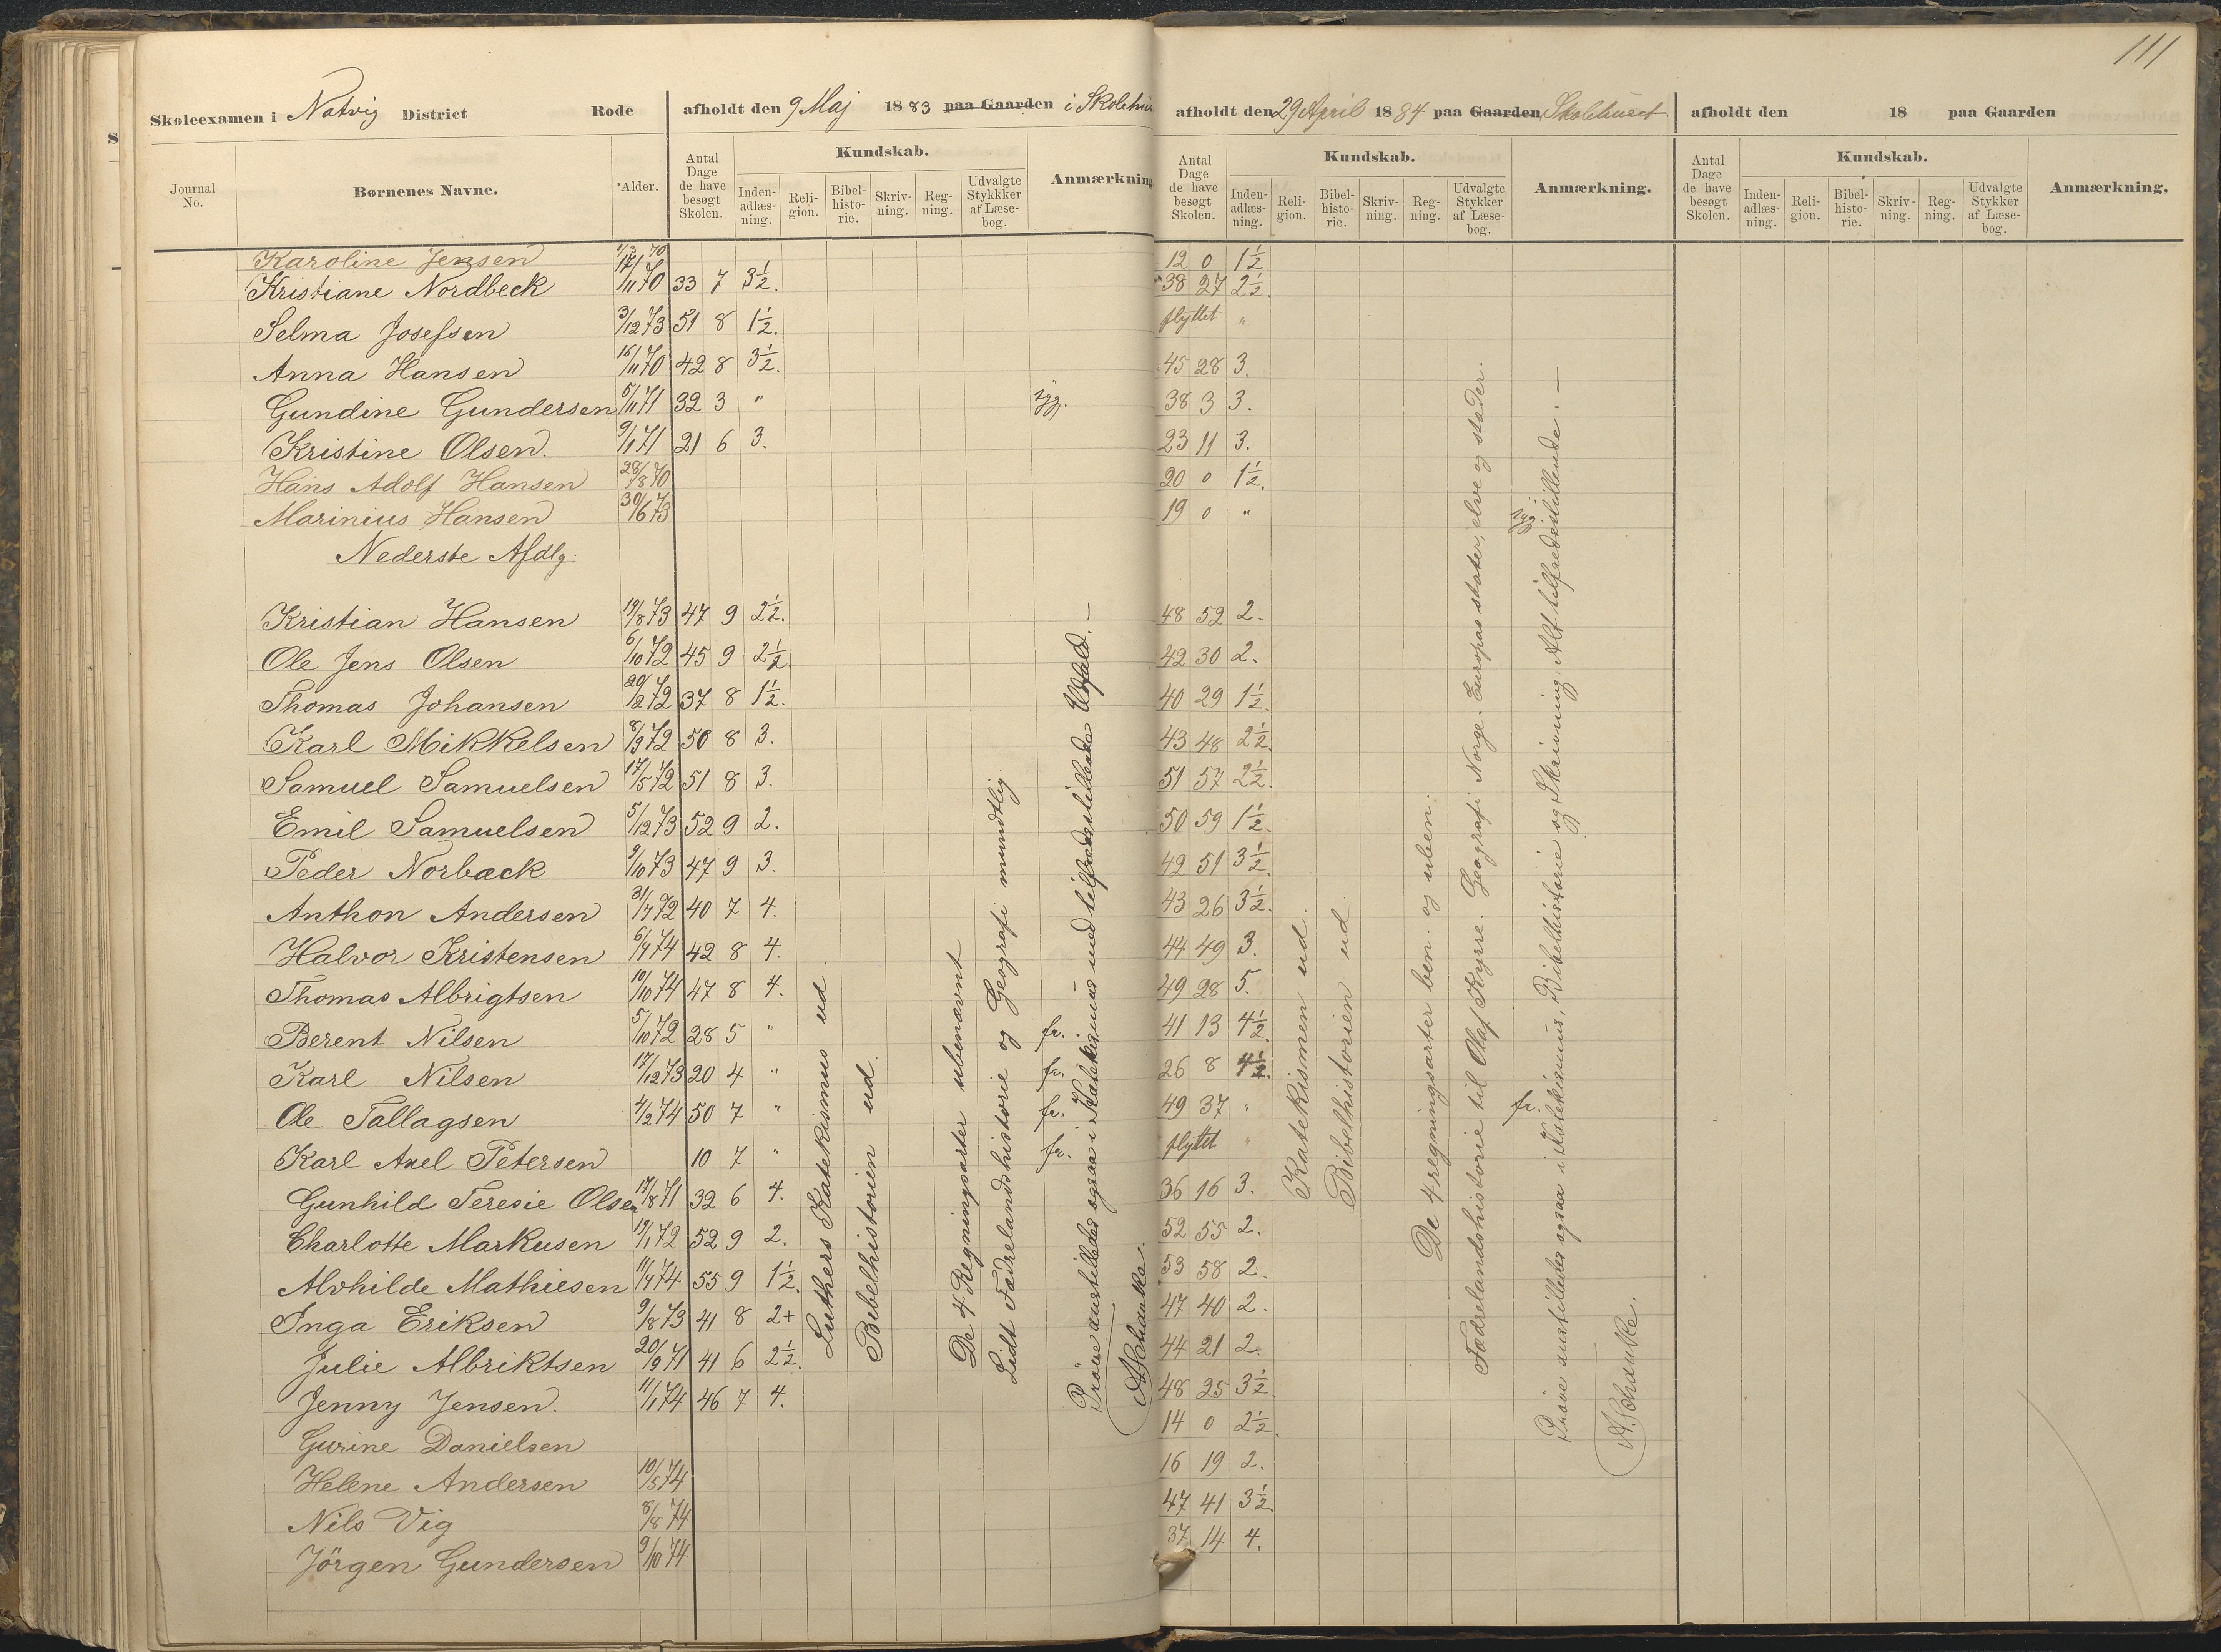 111
Skoleexamen i Natvig District Rode afholdt den 9 Maj 1883 paa Gaarden i Skolehu
afholdt den 29 April 1884 paa Gaarden Skolehuset
afholdt den 18 paa Gaarden
Journal No. Børnenes Navne. Alder. Antal Dage de have besøgt Skolen. Kundskab. Inden-adlæs-ning. Reli-gion. Bibel-histo-rie. Skriv-ning. Reg-ning. Udvalgte Stykker af Læse-bog. Anmærkning
Antal Dage de have besøgt Skolen. Kundskab. Inden-adlæs-ning. Reli-gion. Bibel-histo-rie. Skriv-ning. Reg-ning. Udvalgte Stykker af Læse-bog. Anmærkning.
Antal Dage de have besøgt Skolen. Kundskab. Inden-adlæs-ning. Reli-gion. Bibel-histo-rie. Skriv-ning. Reg-ning. Udvalgte Stykker af Læse-bog. Anmærkning.
Karoline Jensen 12 0 1½
Kristiane Nordbeck 33 7 3½. 38 27 2½.
Selma Josefsen 3/12 73 51 8 1½. flyttet "
Anna Hansen 16/11 70 42 8 3½. 45 28 3.
Gundine Gundersen 5/11 71 32 3 " syg. 38 3 3.
Kristine Olsen. 9/1 71 21 6 3. 23 11 3.
Hans Adolf Hansen 28/8 70 20 0 1½.
Marinius Hansen 30/6 73 19 0 " syg.
Nederste Afdlg.
Kristian Hansen 19/8 73 47 9 2½. 48 52 2.
Ole Jens Olsen 6/10 72 45 9 2½. 42 30 2.
Thomas Johansen 37 8 1½. 40 29 1½.
Karl Mikkelsen 8/9 72 50 8 3. 43 48 2½.
Samuel Samuelsen 17/5 72 51 8 3. 51 57 2½.
Emil Samuelsen 5/12 73 52 9 2. 50 59 1½.
Peder Norbæck 9/10 73 47 9 3. 49 51 3½.
Anthon Andersen 31/7 72 40 7 4. 43 26 3½.
Halvor Kristensen 6/7 74 42 8 4. 44 49 3.
Thomas Albrigtsen 10/10 74 47 8 4. 49 28 5.
Berent Nilsen 5/10 72 28 5 " fr. 41 13 4½.
Karl Nilsen 17/12 73 20 4 " fr. 26 8 4½.
Ole Tallagsen 4/2 74 50 7 " fr. 49 37 " fr.
Karl Axel Petersen 10 7 " fr. flyttet "
Gunhild Teresie Olsen 17/8 71 32 6 4. 36 16 3.
Charlotte Markusen 19/1 72 52 9 2. 52 55 2.
Alvhilde Mathiesen 11/7 74 55 9 1½. 53 58 2.
Inga Eriksen 9/8 73 41 8 2+ 47 40 2.
Julie Albriktsen 20/9 71 41 6 2½. 44 21 2.
Jenny Jensen. 11/1 74 46 7 4. 48 25 3½.
Gurine Danielsen 14 0 2½.
Helene Andersen 10/5 74 16 19 2.
Nils Vig 8/8 74 47 41 3½.
Jörgen Gundersen 9/10 74 37 14 4.
Luthers Katekismus ud
Bibelhistorien ud.
De 4 Regningsarter ubenævnt
Lidt Fædrelandshistorie og Geografi mundtlig
Prøve anstilledes ogsaa i Katekismus med tilfredsstillende Udfald. —
A Schanke.
Katekismen ud.
Bibelhistorien ud.
De 4 regningsarter ben. og uben.
Fædrelandshistorie til Olaf Kyrre. Geografi Norge. Europas stater, elve og stæder.
Prøve anstilledes ogsaa i Katekismus, Bibelhistorie og Skrivning. Alt tilfredsstillende. —
A. Schanke.